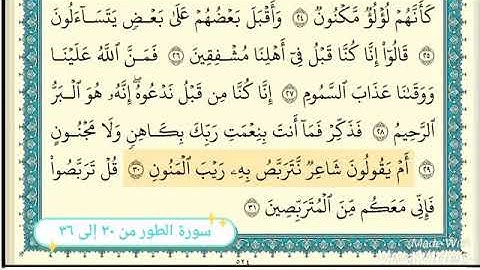 كَأَنَّهُمْ لُؤْلُؤٌ مَّكْنُونٌ ٢٤ وَأَقْبَلَ بَعْضُهُمْ عَلَىٰ بَعْضٍ يَتَسَآءَلُونَ
٢٥ قَالُوٓا۟ إِنَّا كُنَّا قَبْلُ فِىٓ أَهْلِنَا مُشْفِقِينَ ٢٦ فَمَنَّ ٱللَّهُ عَلَيْنَا
وَوَقَىٰنَا عَذَابَ ٱلسَّمُومِ ٢٧ إِنَّا كُنَّا مِن قَبْلُ نَدْعُوهُ ۖ إِنَّهُۥ هُوَ ٱلْبَرُّ
ٱلرَّحِيمُ ٢٨ فَذَكِّرْ فَمَآ أَنتَ بِنِعْمَتِ رَبِّكَ بِكَاهِنٍ وَلَا مَجْنُونٍ
٢٩ أَمْ يَقُولُونَ شَاعِرٌ نَّتَرَبَّصُ بِهِۦ رَيْبَ ٱلْمَنُونِ ٣٠ قُلْ تَرَبَّصُوا۟
فَإِنِّى مَعَكُم مِّنَ ٱلْمُتَرَبِّصِينَ ٣١
سورة الطور من ٣٠ إلى ٣٦
Made With
٥٢٤